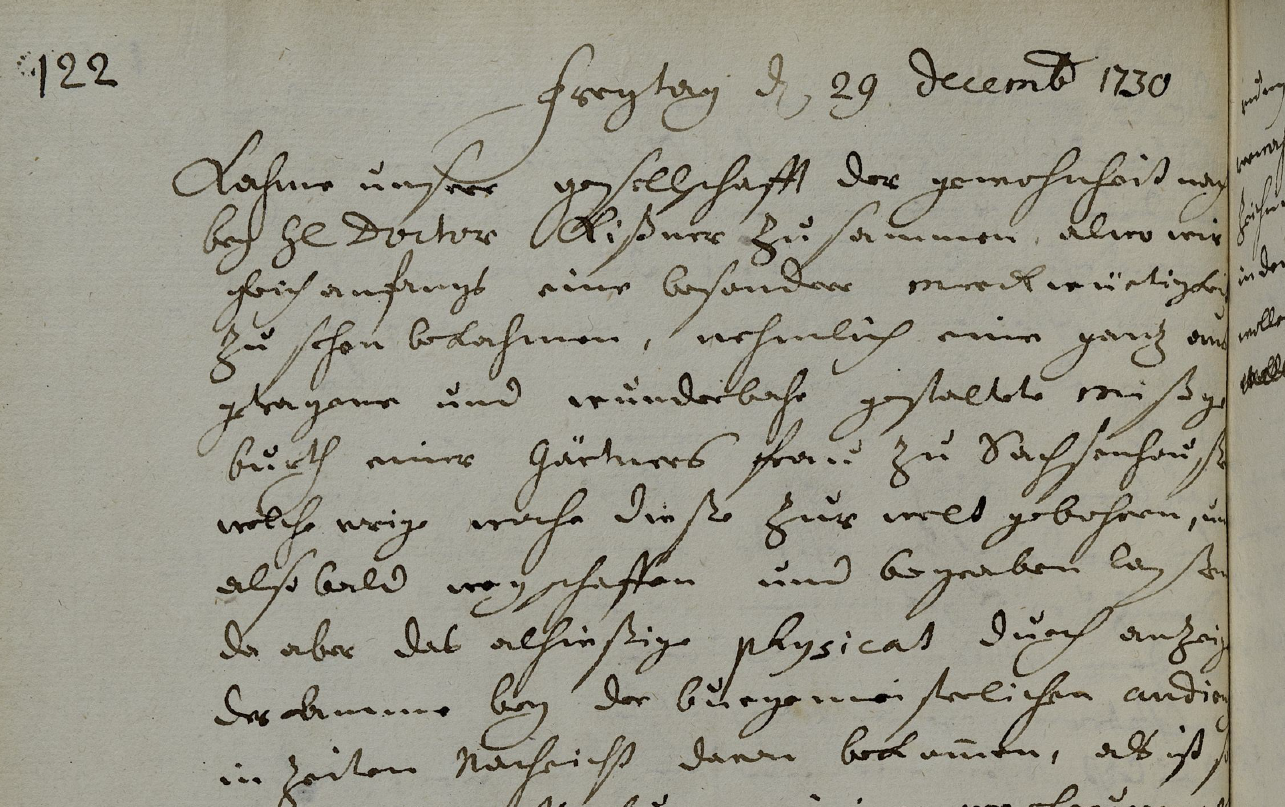 122
Freytag d 29 Decemb 1730
Kahme unsere gesellschafft der gewohnheit nach
bey H Doctor Kißner zusammen, alwo wir
gleich anfangs eine besondere merckwürtigkeit
zu sehen bekahmen, nehmlich eine gantz aus
getragene und wunderbahr gestaltete mißge
burth einer Gärtners frau zu Sachsenhauße
welche vorige woche dieße zur welt gebohren, und
alsobald wegschaffen und begraben laßen
da aber das alhießige physicat durch anzeig
der amme bey der burgemeisterlichen audienz
in zeiten Nachricht davon bekom̅en, als ist